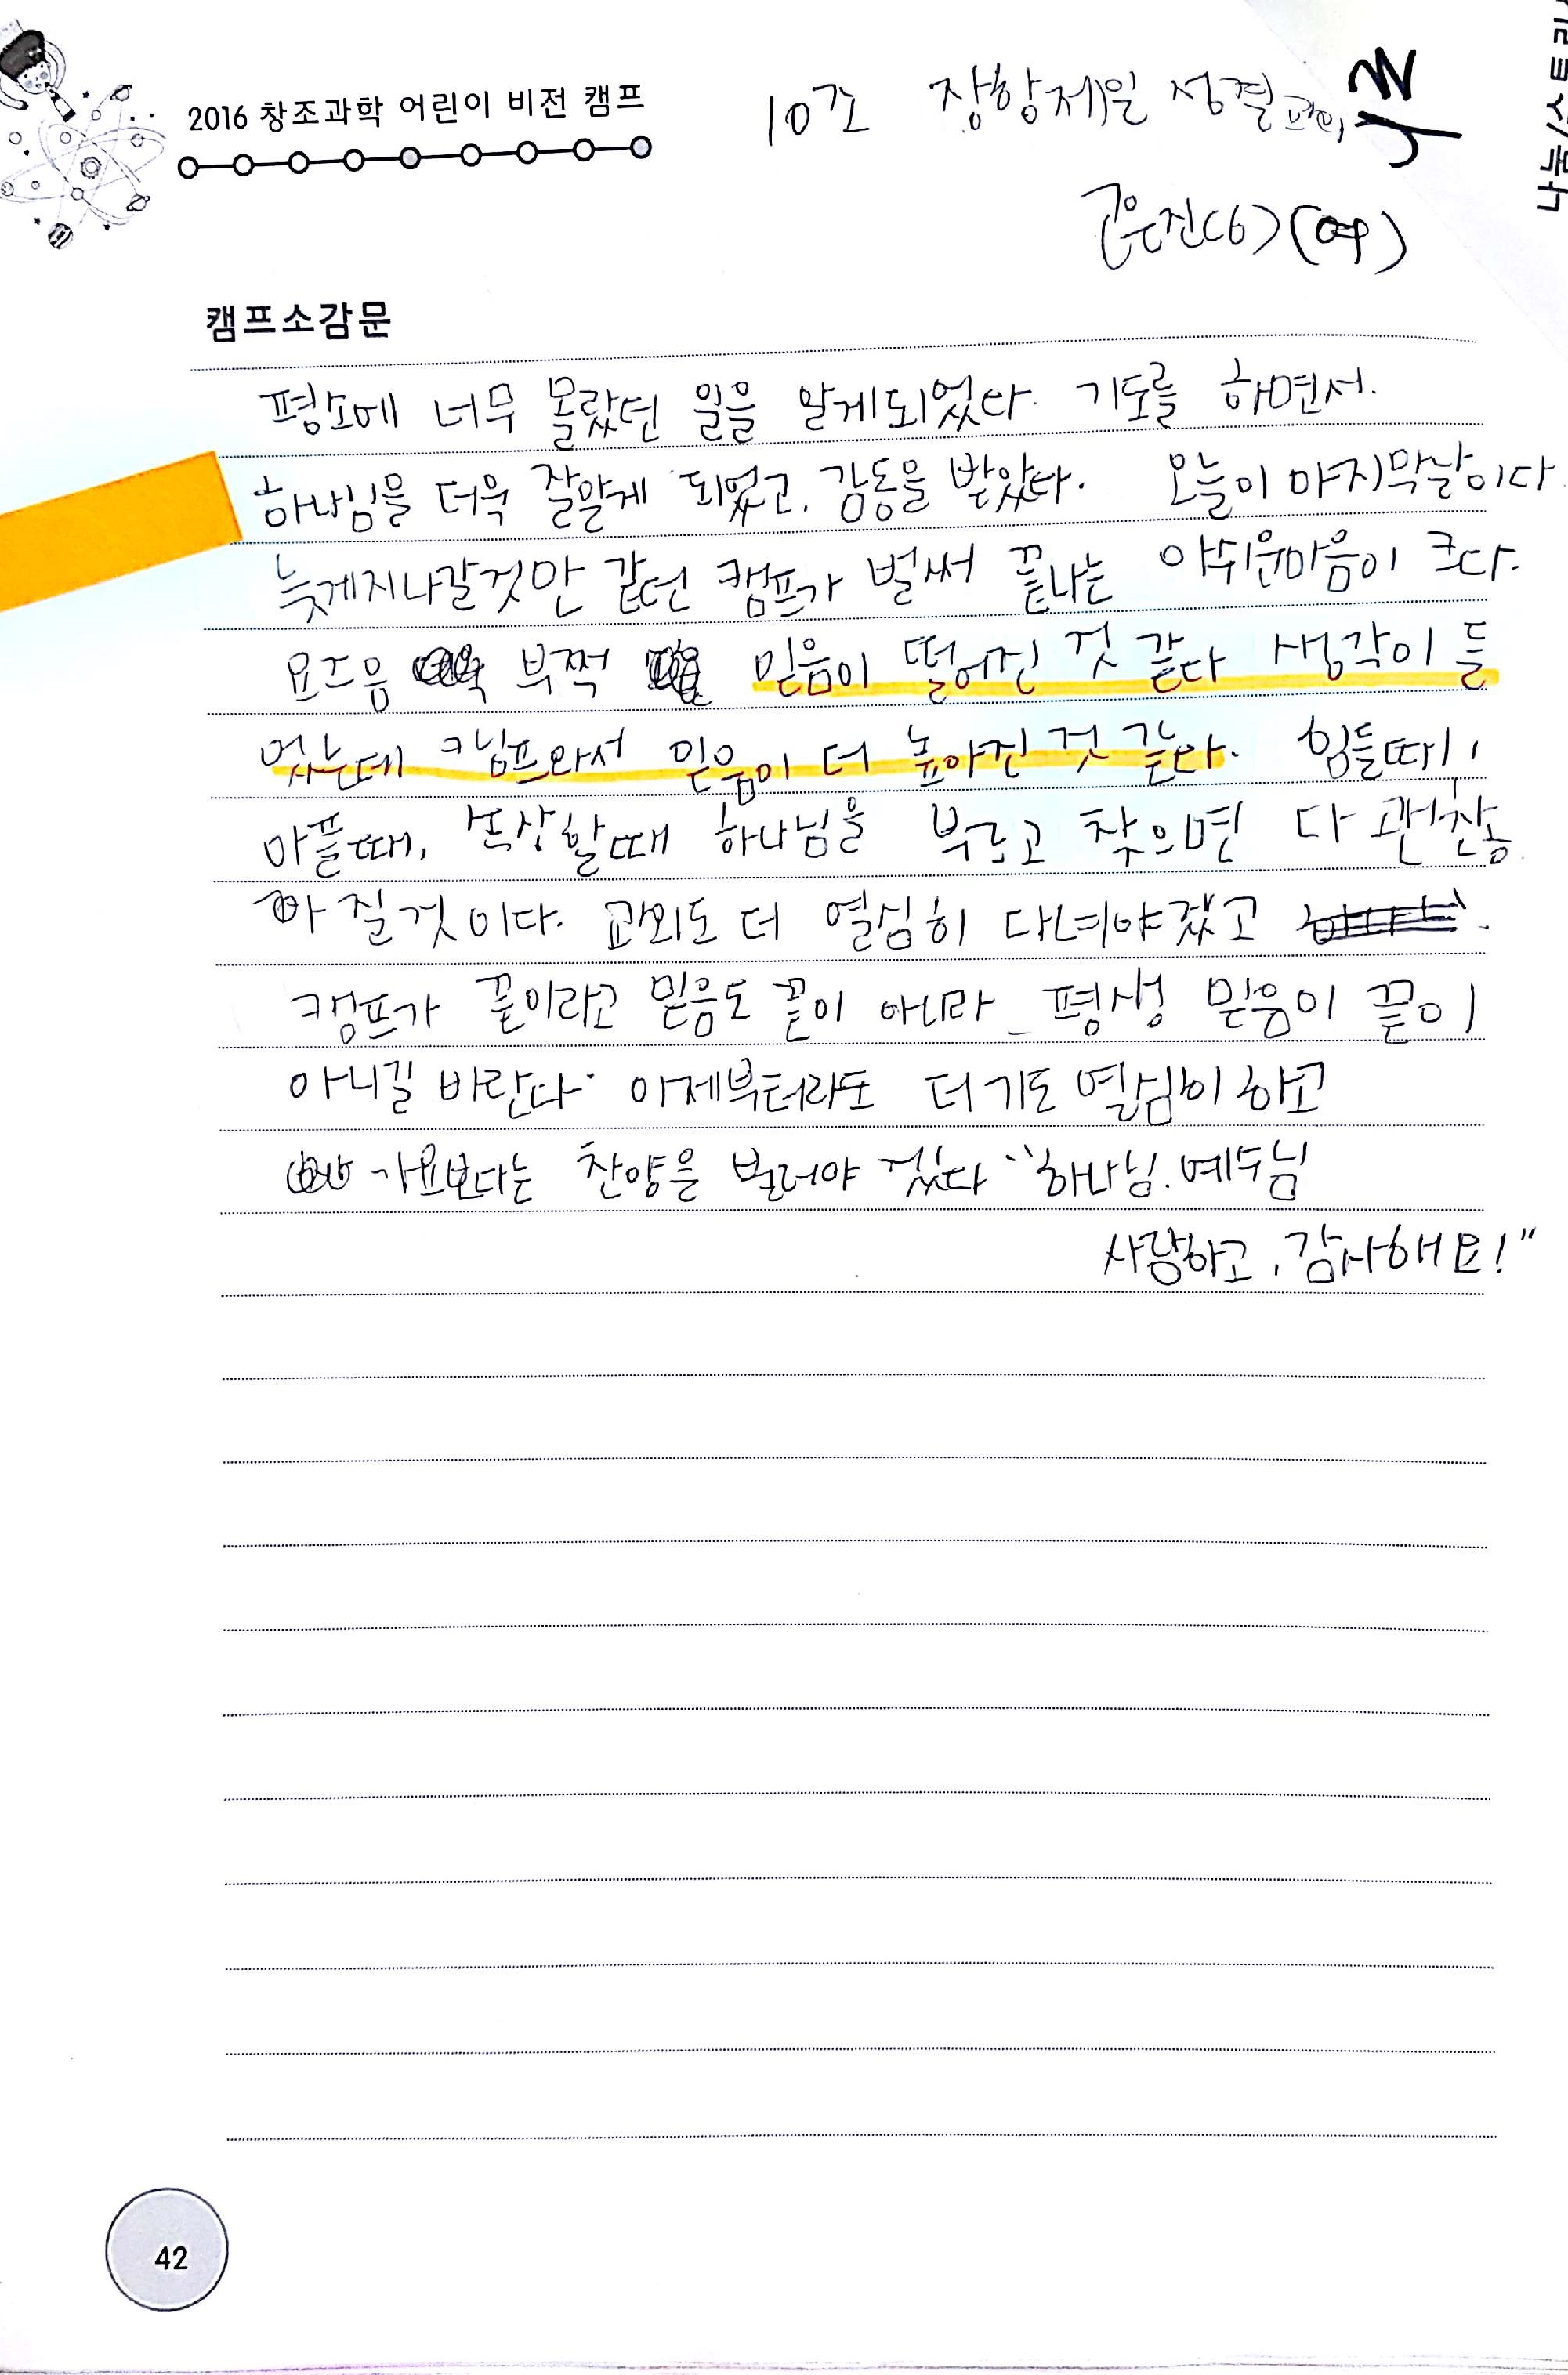 2016 창조과학 어린이 비전 캠프
10조 장항제일 성결교회
은진(6) (여)
캠프소감문
평소에 너무 몰랐던 일을 알게되었다. 기도를 하면서.
하나님을 더욱 잘알게 되었고, 감동을 받았다. 오늘이 마지막날이다
늦게지나갈것만 같던 캠프가 벌써 끝나는 아쉬운마음이 크다.
요즈음 부쩍 믿음이 떨어진 것 같다 생각이 들
었는데 캠프와서 믿음이 더 높아진 것 같다. 힘들때,
아플때, 속상할때 하나님을 부르고 찾으면 다 괜찮
아 질것이다. 교회도 더 열심히 다녀야겠고
캠프가 끝이라고 믿음도 끝이 아니라 평생 믿음이 끝이
아니길 바란다. 이제부터라도 더 기도 열심히 하고
가요보다는 찬양을 불러야 겠다 "하나님. 예수님
사랑하고, 감사해요!"
42